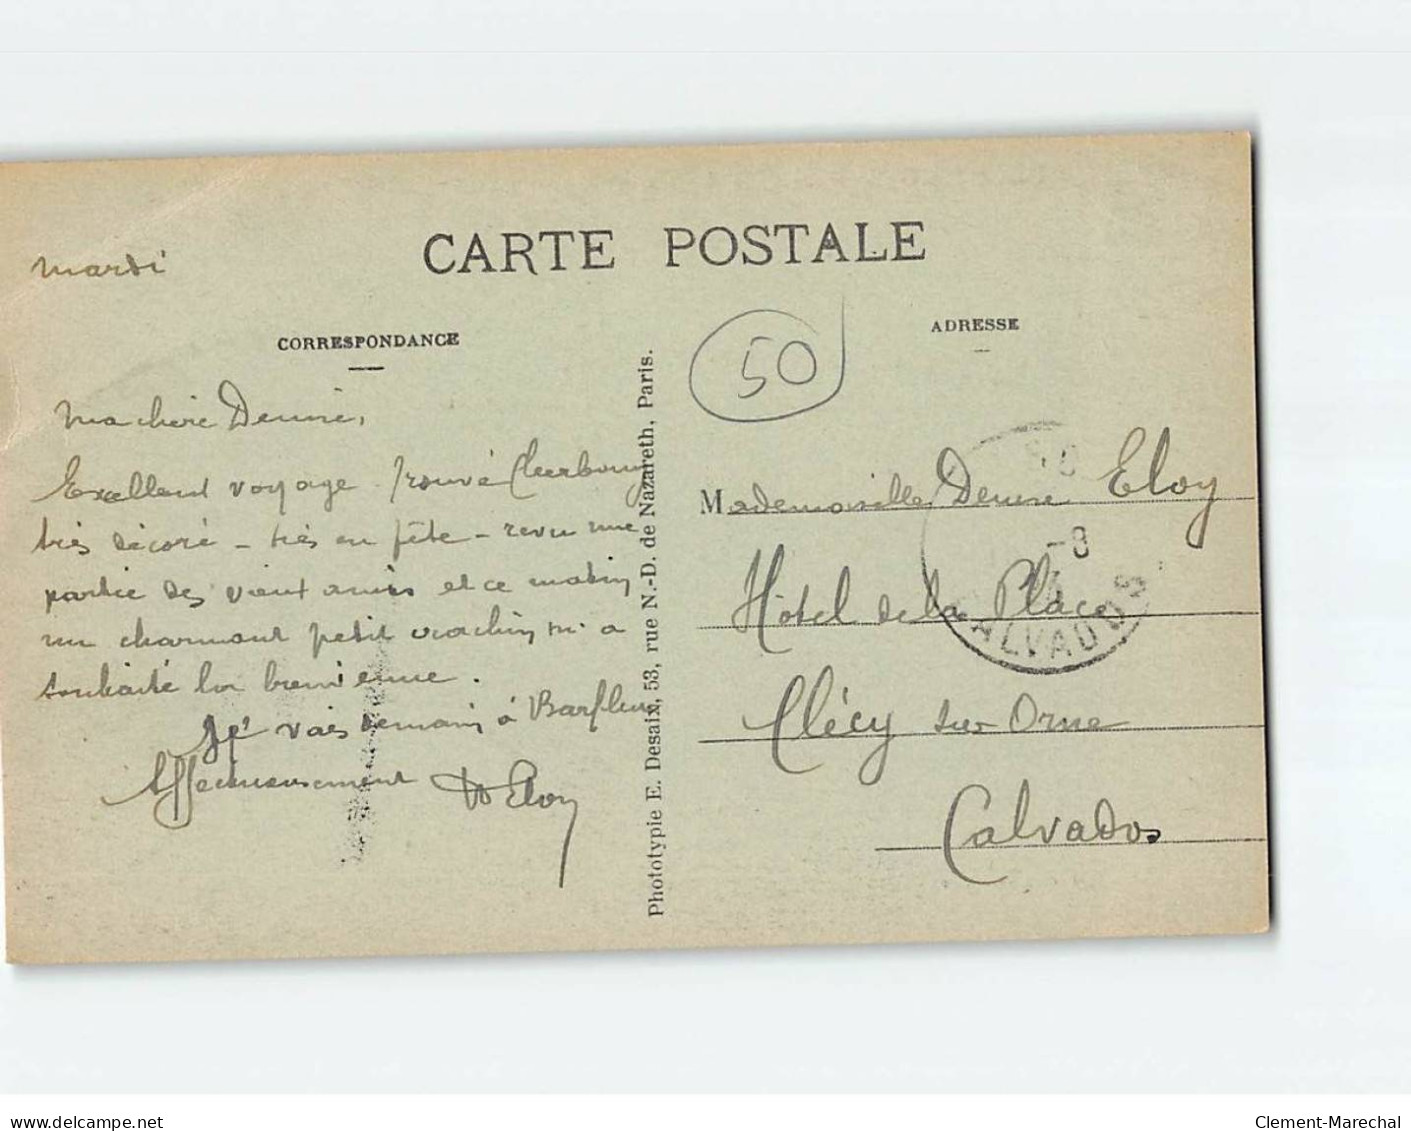 CARTE POSTALE
mardi
CORRESPONDANCE
ADRESSE
50
Ma chère Denise,
Excellent voyage. Trouvé Cherbourg
très décoré - très en fête - revu une
partie des vieux amis et ce matin
un charmant petit m'a
souhaité la bienvenue.
Je vais demain à Barfleur
Affectueusement Eloy
Phototypie E. Desaix, 53, rue N.-D. de Nazareth, Paris.
Mademoiselle Denise Eloy
Hôtel de la Place
Clécy sur Orne
Calvados
-8
CALVADOS
www.delcampe.net
Clement-Marechal